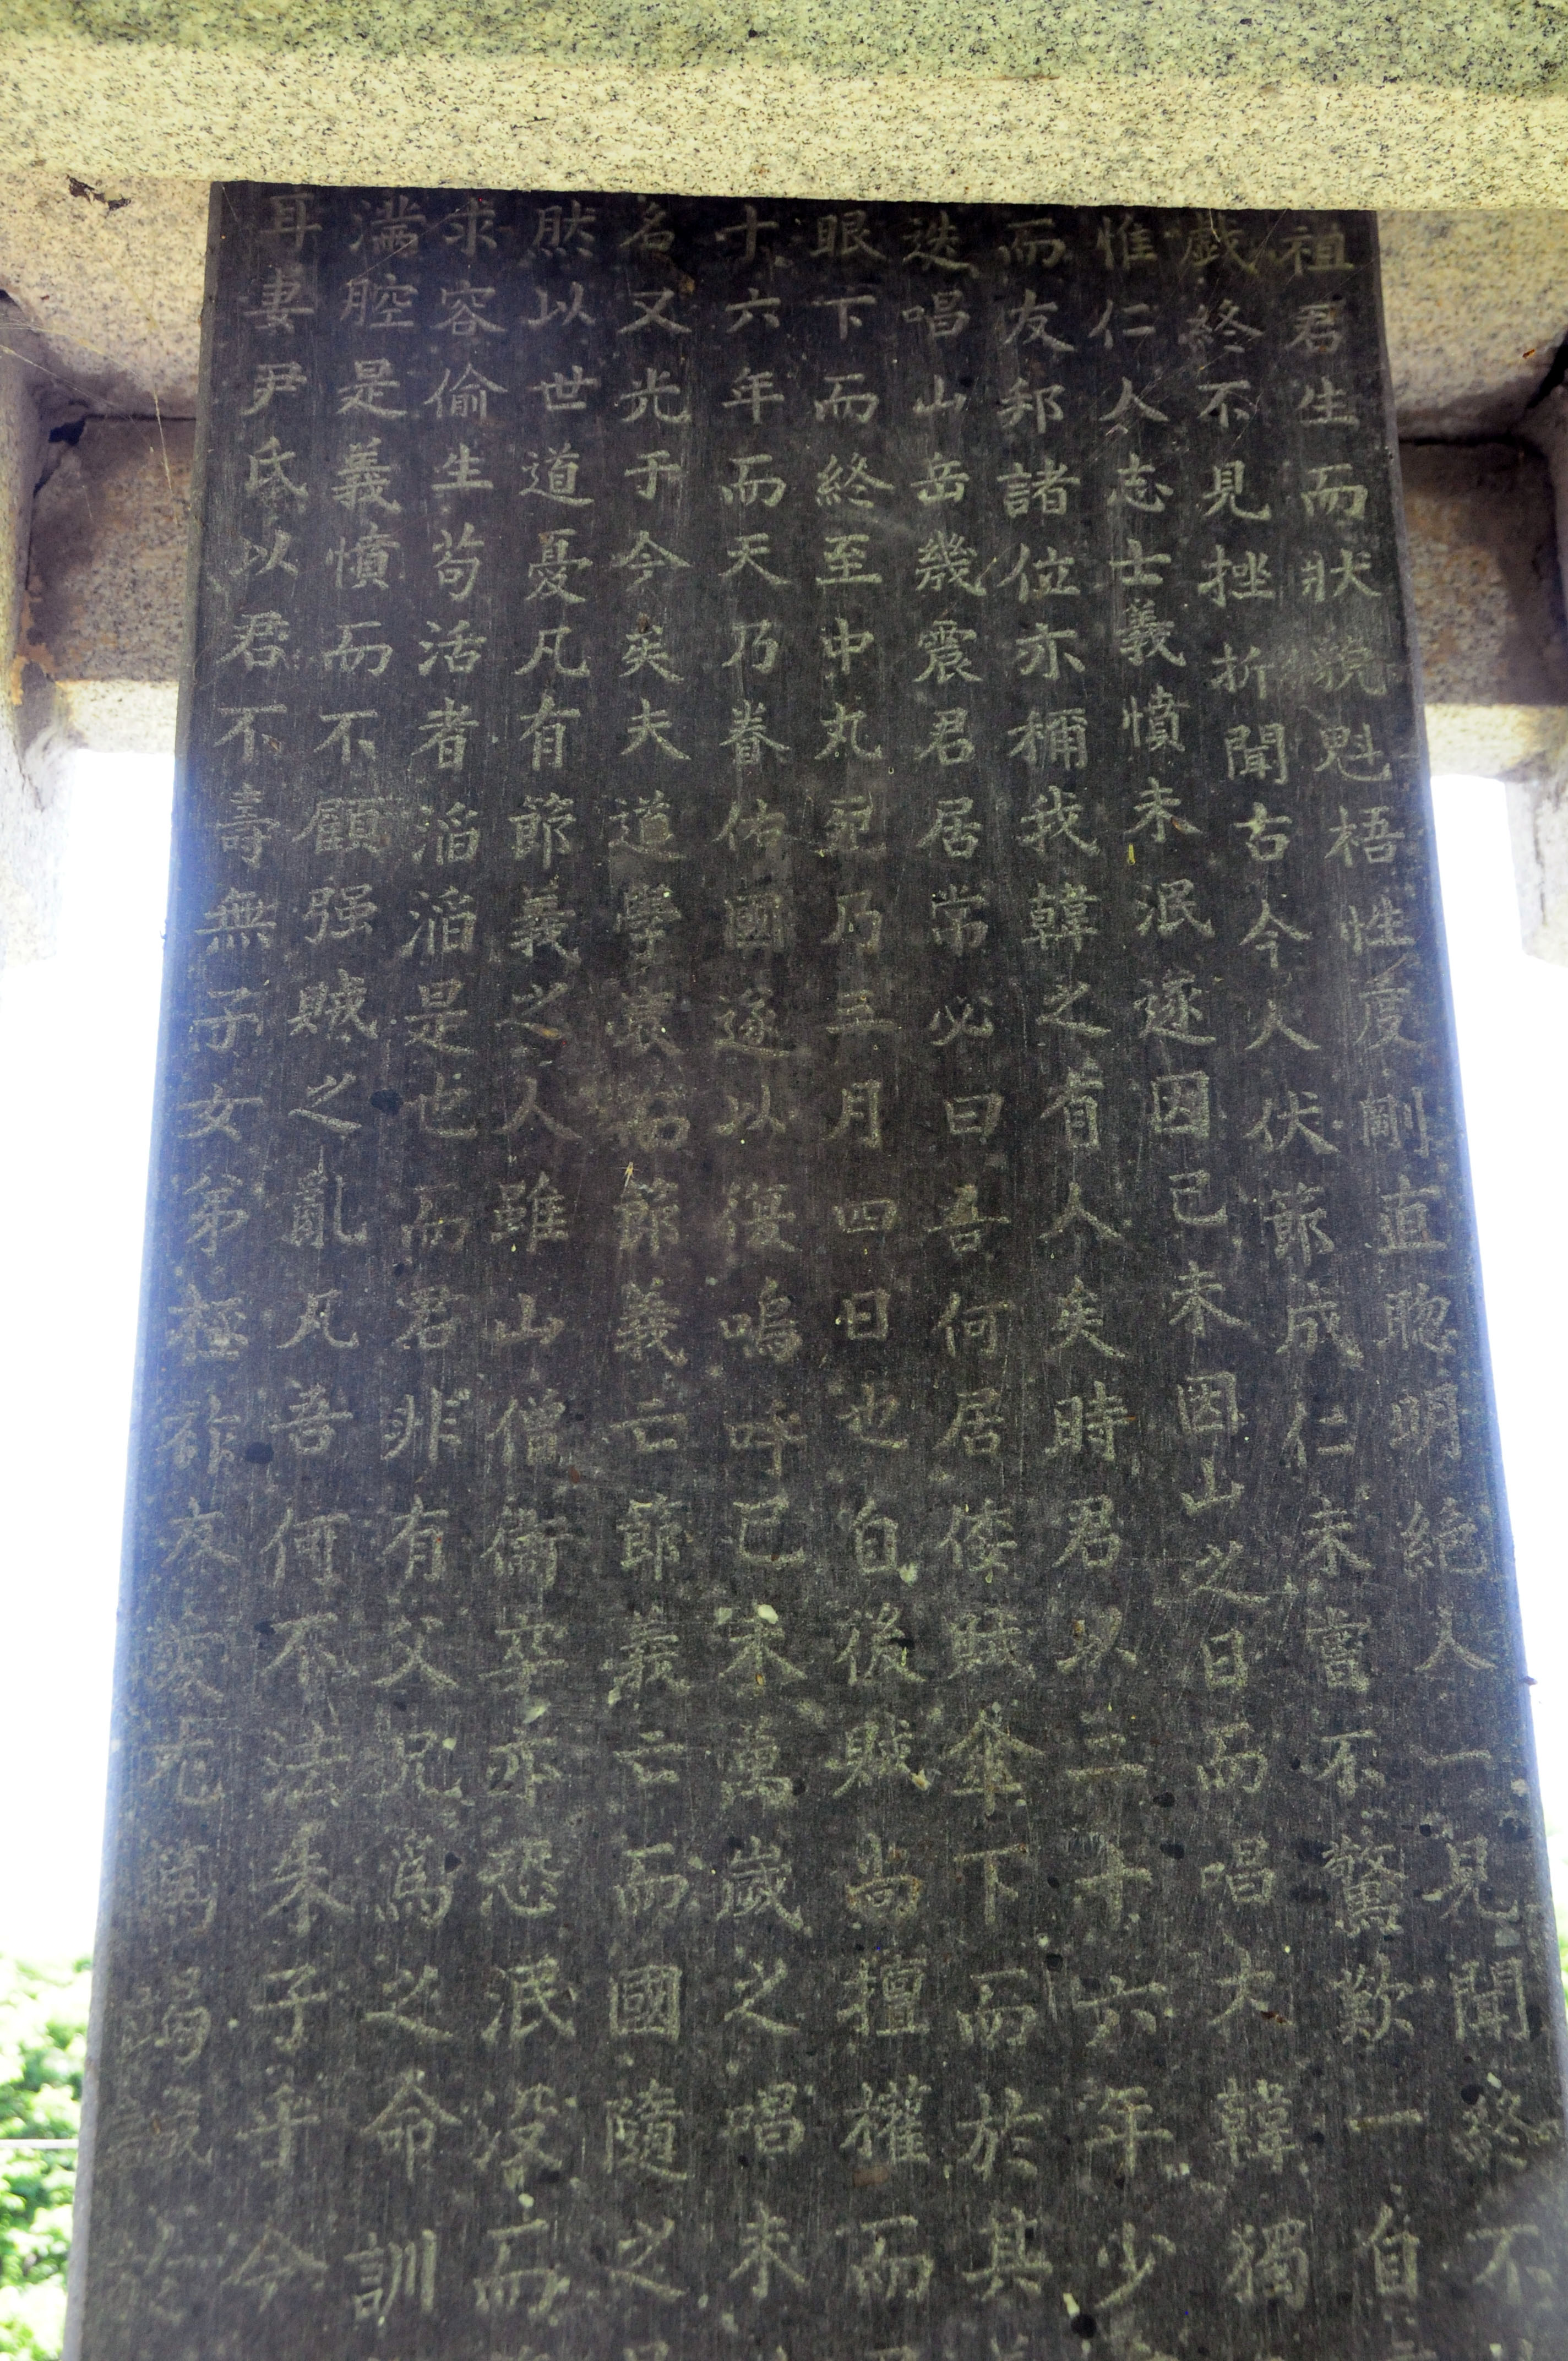 祖君生而狀貌魁梧性度剛直聰明絶人一見聞終不
戱終不見挫折聞古今人伏節成仁未嘗不驚歎一自
惟仁人志士義憤未泯迹因己未因山之日而唱大韓獨
而友邦諸位亦稱我韓之有人矣時君以二十六年少
迭唱山岳幾震君居常必曰吾何居倭賊傘下而於其
眼下而終至中丸死乃三月四日也自後賊尚擅權而
十六年而天乃眷佑國遂以復嗚呼己未萬歲之唱未
名又光于今矣夫道學衰而節義亡節義亡而國隨之
然以世道憂凡有節義之人雖山僧衞卒亦恐泯没而
求容偷生苟活者滔滔是也而君非有父兄爲之命訓
滿腔是義憤而不顧强賊之亂凡吾何不法朱子于今
耳妻尹氏以君不壽無子女弟極祚友愛尤篤竭誠